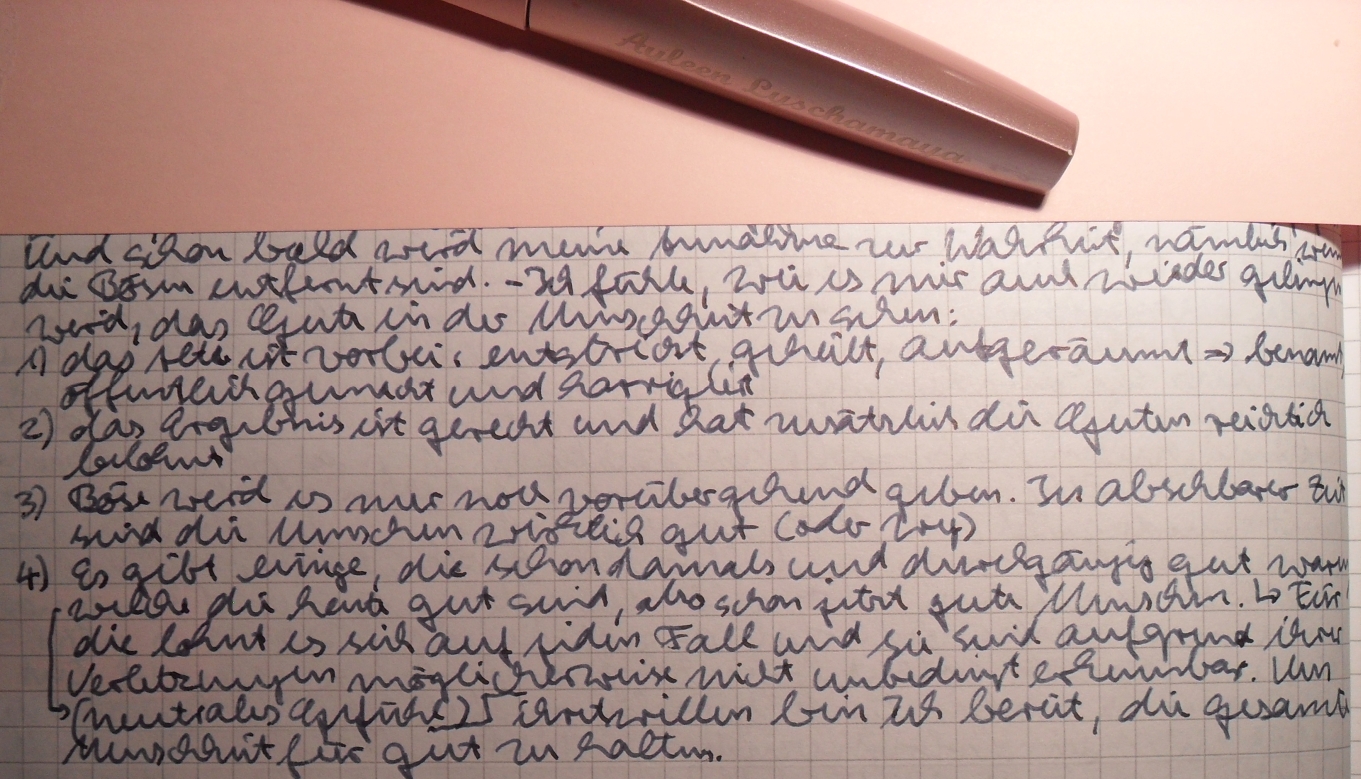 Auleen Puschamaua
Und schon bald wird meine Annahme zur Wahrheit, nämlich wenn
die Bösen entfernt sind. - Ich fühle, wie es mir auch wieder gelingen
werd, das Gute in der Menschheit zu sehen:
1) das Alte ist vorbei: entstört, geheilt, aufgeräumt => benannt,
öffentlich gemacht und
2) das Ergebnis ist gerecht und hat zusätzlich die Guten reichlich
belohnt
3) Böse werd es nur noch vorübergehend geben. In absehbarer Zeit
sind die Menschen wirklich gut (oder weg)
4) Es gibt einige, die schon damals und durchgängig gut waren
welche die heute gut sind, also schon jetzt gute Menschen. ↳ Für
die lohnt es sich auf jeden Fall und sie sind aufgrund ihrer
Verletzungen möglicherweise nicht unbedingt erkennbar. Um
(neutrales Gefühl) ihretwillen bin Ich bereit, die gesamte
Menschheit für gut zu halten.